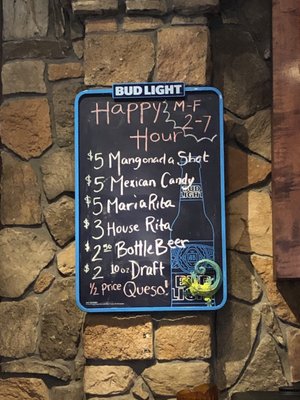 BUD LIGHT
Happy M-F
Hour 2-7
$5 Mangonada Shot
$5 Mexican Candy
$5 Maria Rita
$3 House Rita
$2.50 Bottle Beer
$2 10oz Draft
½ price Queso!
BUD
LIGHT
BUD
LIGHT